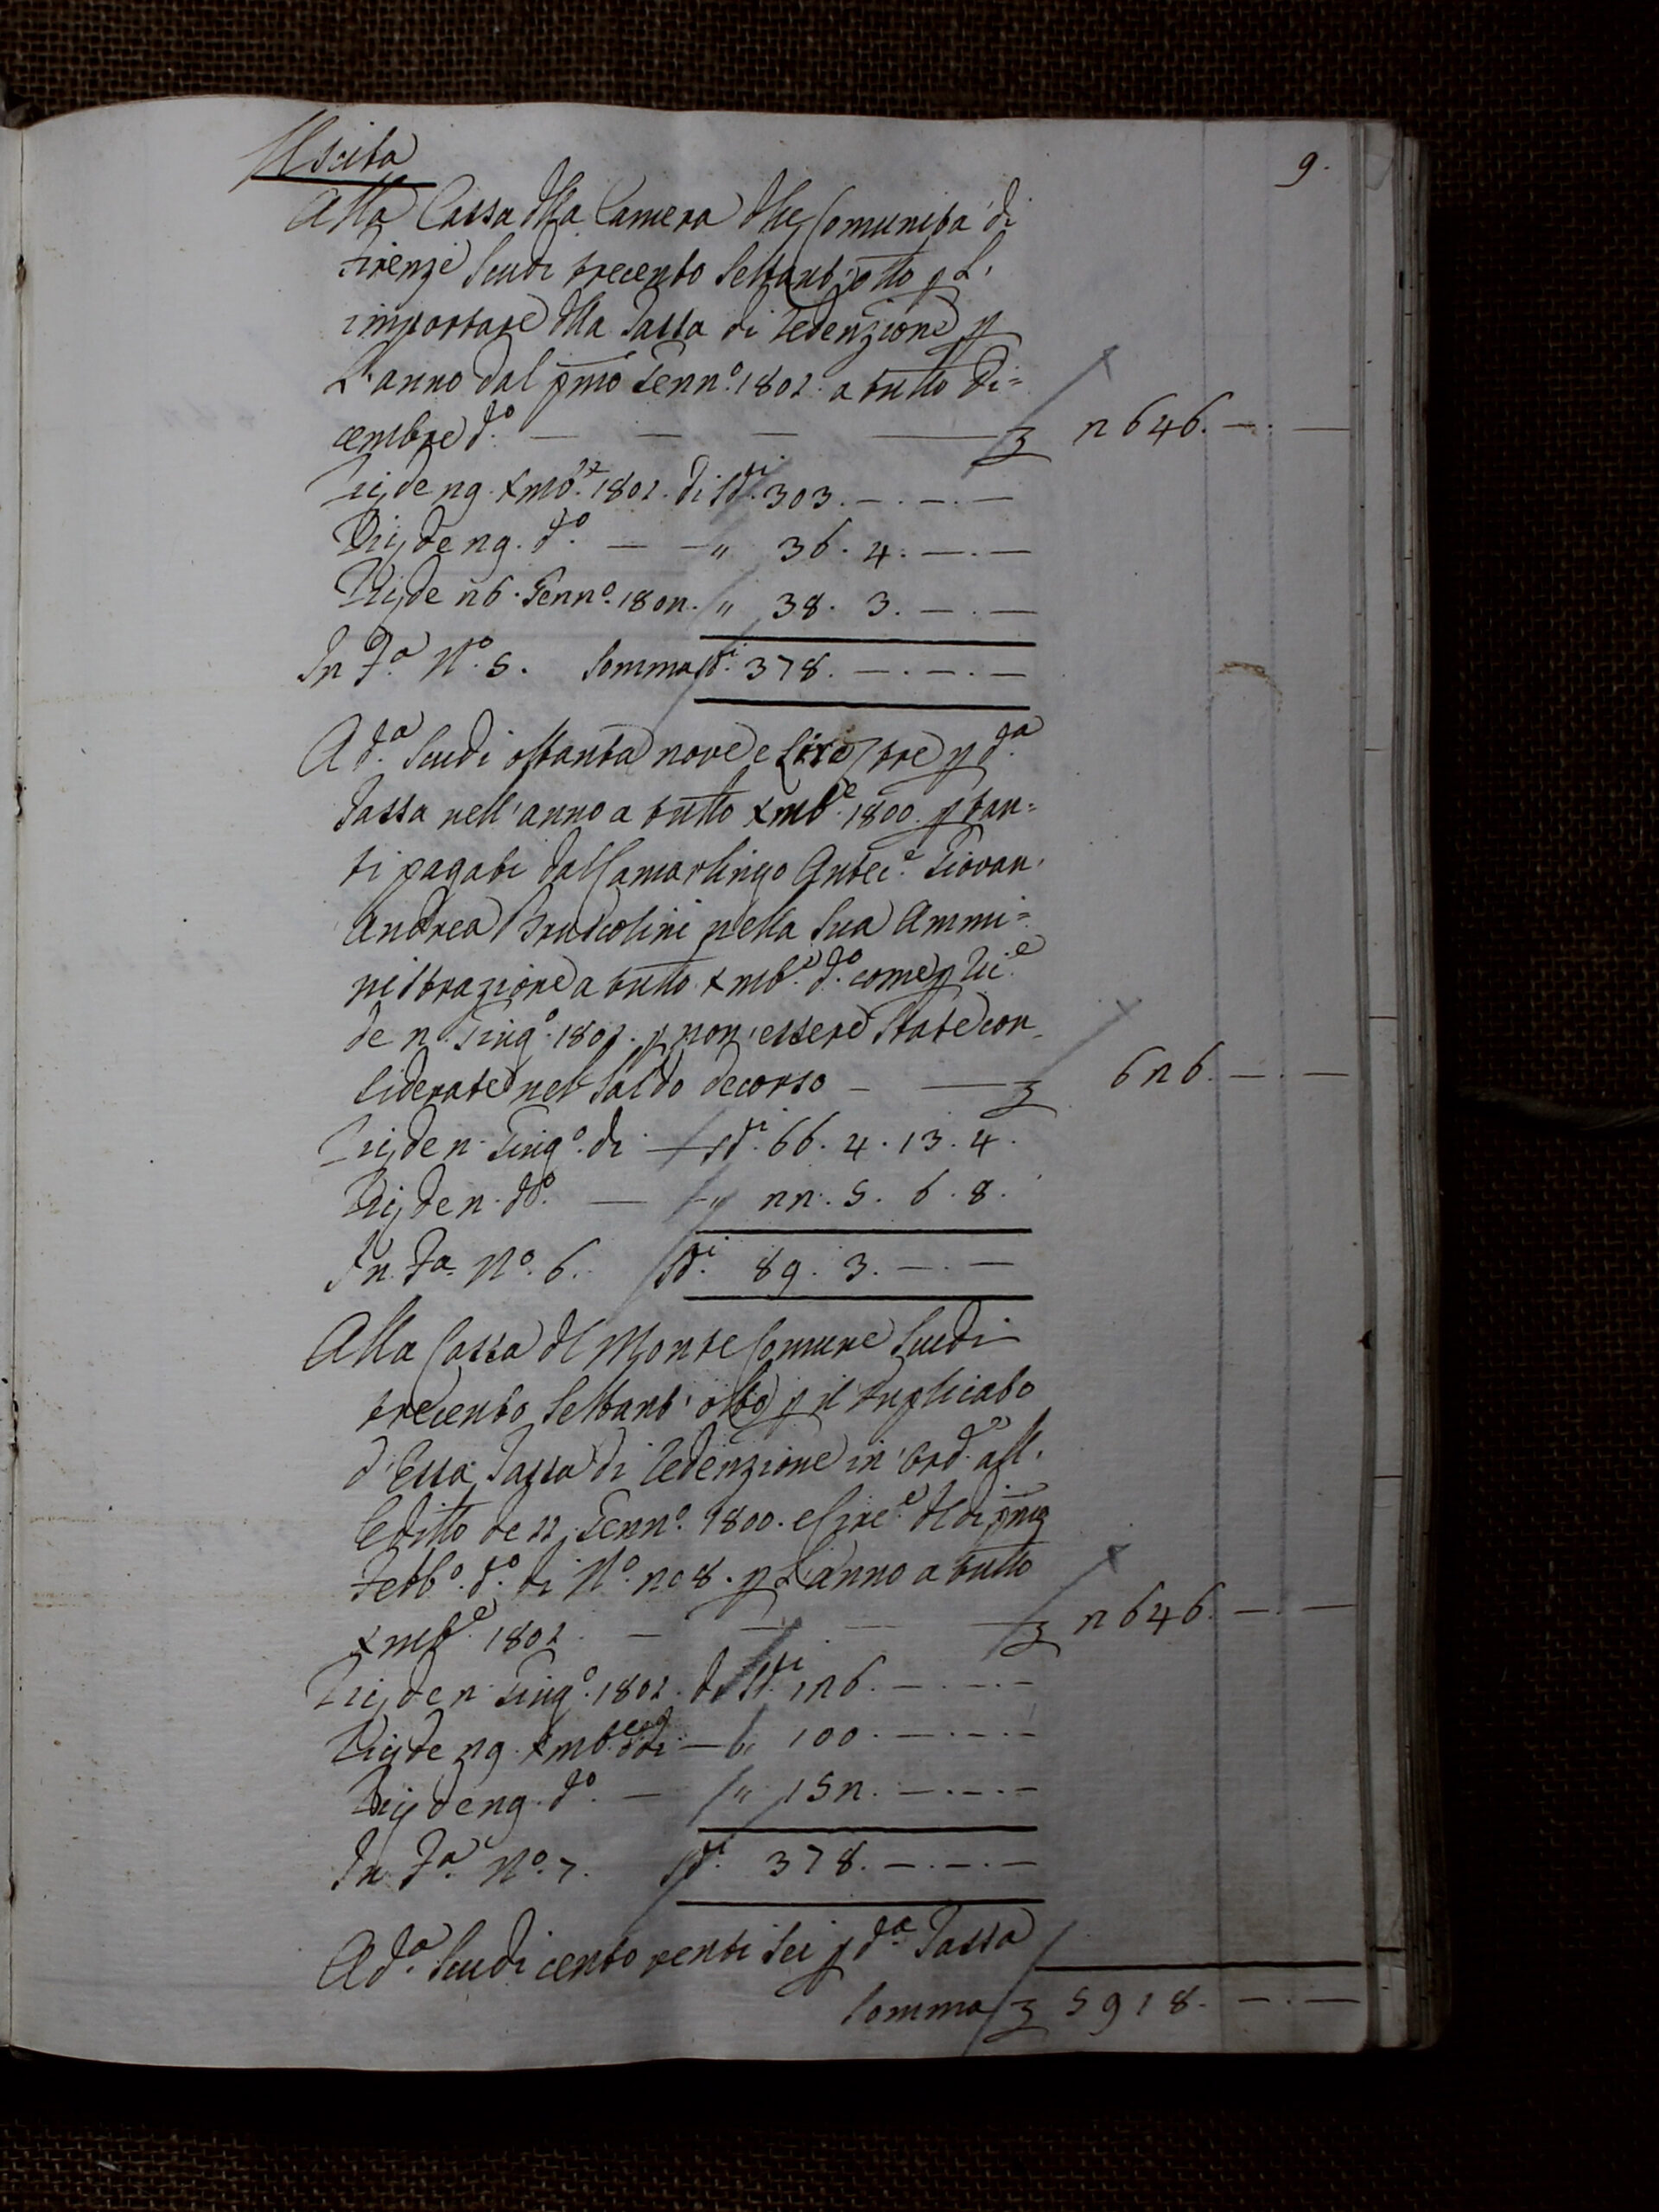 Uscita
9.
Alla Cassa dlla Camera dlle Comunità di
Firenze Scudi trecento Settant'otto p L'
importare dlla Tassa di Redenzione p
L'anno dal pmo Genn.º 1801. a tutto Di=
cembre d.º — — — — £ 2646. — . —
Ric; de 29. Xmb.e 1801. di Sd.i 303. — . — . —
Ric; de 29. d.º — — " 36. 4. — . —
Ric; de 26. Genn.º 1802. " 38. 3. — . —
In F.a N.º 5. Somma Sd.i 378. — . — . —
A d.a Scudi ottanta nove e Lire tre p d.a
Tassa nell'anno a tutto Xmb.e 1800. p tan=
ti pagati dal Camarlingo Antec.e Giovan'
Andrea Bruscolini nella Sua Ammi=
nistrazione a tutto Xmb.e d.º come p Ric.e
de 2. Giug.º 1801. p non essere State con=
siderate nel Saldo decorso — — £ 626. — . —
Ric; de 2. Giug.º di — Sd.i 66. 4. 13. 4.
Ric; de 2. d.º — " 22. 5. 6. 8.
In Fa. N.º 6. Sd.i 89. 3. — . —
Alla Cassa dl Monte Comune Scudi
trecento Settant'otto p il duplicato
d'Essa Tassa di Redenzione in Ord.e all'
Editto de 22; Genn.º 1800. e Circ.e dl di pmo
Febb.º d.º di N.º 208. p L'anno a tutto
Xmb.e 1801. — — — — £ 2646. — . —
Ric; de 2. Giug.º 1801. di Sd.i 126. — . — . —
Ric; de 29. Xmb.e d.º di — " 100. — . — . —
Ric; de 29. d.º — " 152. — . — . —
In F.a N.º 7. Sd.i 378. — . — . —
A d.a Scudi cento venti Sei p d.a Tassa
Somma £ 5918. — . —